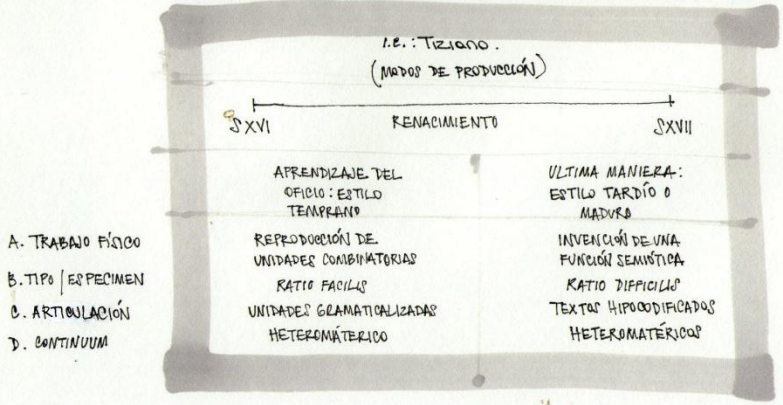 I.E.: TIZIANO.
(MODOS DE PRODUCCIÓN)
SXVI RENACIMIENTO SXVII
APRENDIZAJE DEL
OFICIO: ESTILO
TEMPRANO
ULTIMA MANIERA:
ESTILO TARDÍO O
MADURO
A. TRABAJO FÍSICO REPRODUCCIÓN DE
UNIDADES COMBINATORIAS
INVENCIÓN DE UNA
FUNCIÓN SEMIÓTICA
B. TIPO / ESPECIMEN RATIO FACILIS RATIO DIFFICILIS
C. ARTICULACIÓN UNIDADES GRAMATICALIZADAS TEXTOS HIPOCODIFICADOS
D. CONTINUUM HETEROMÁTERICO HETEROMATÉRICOS